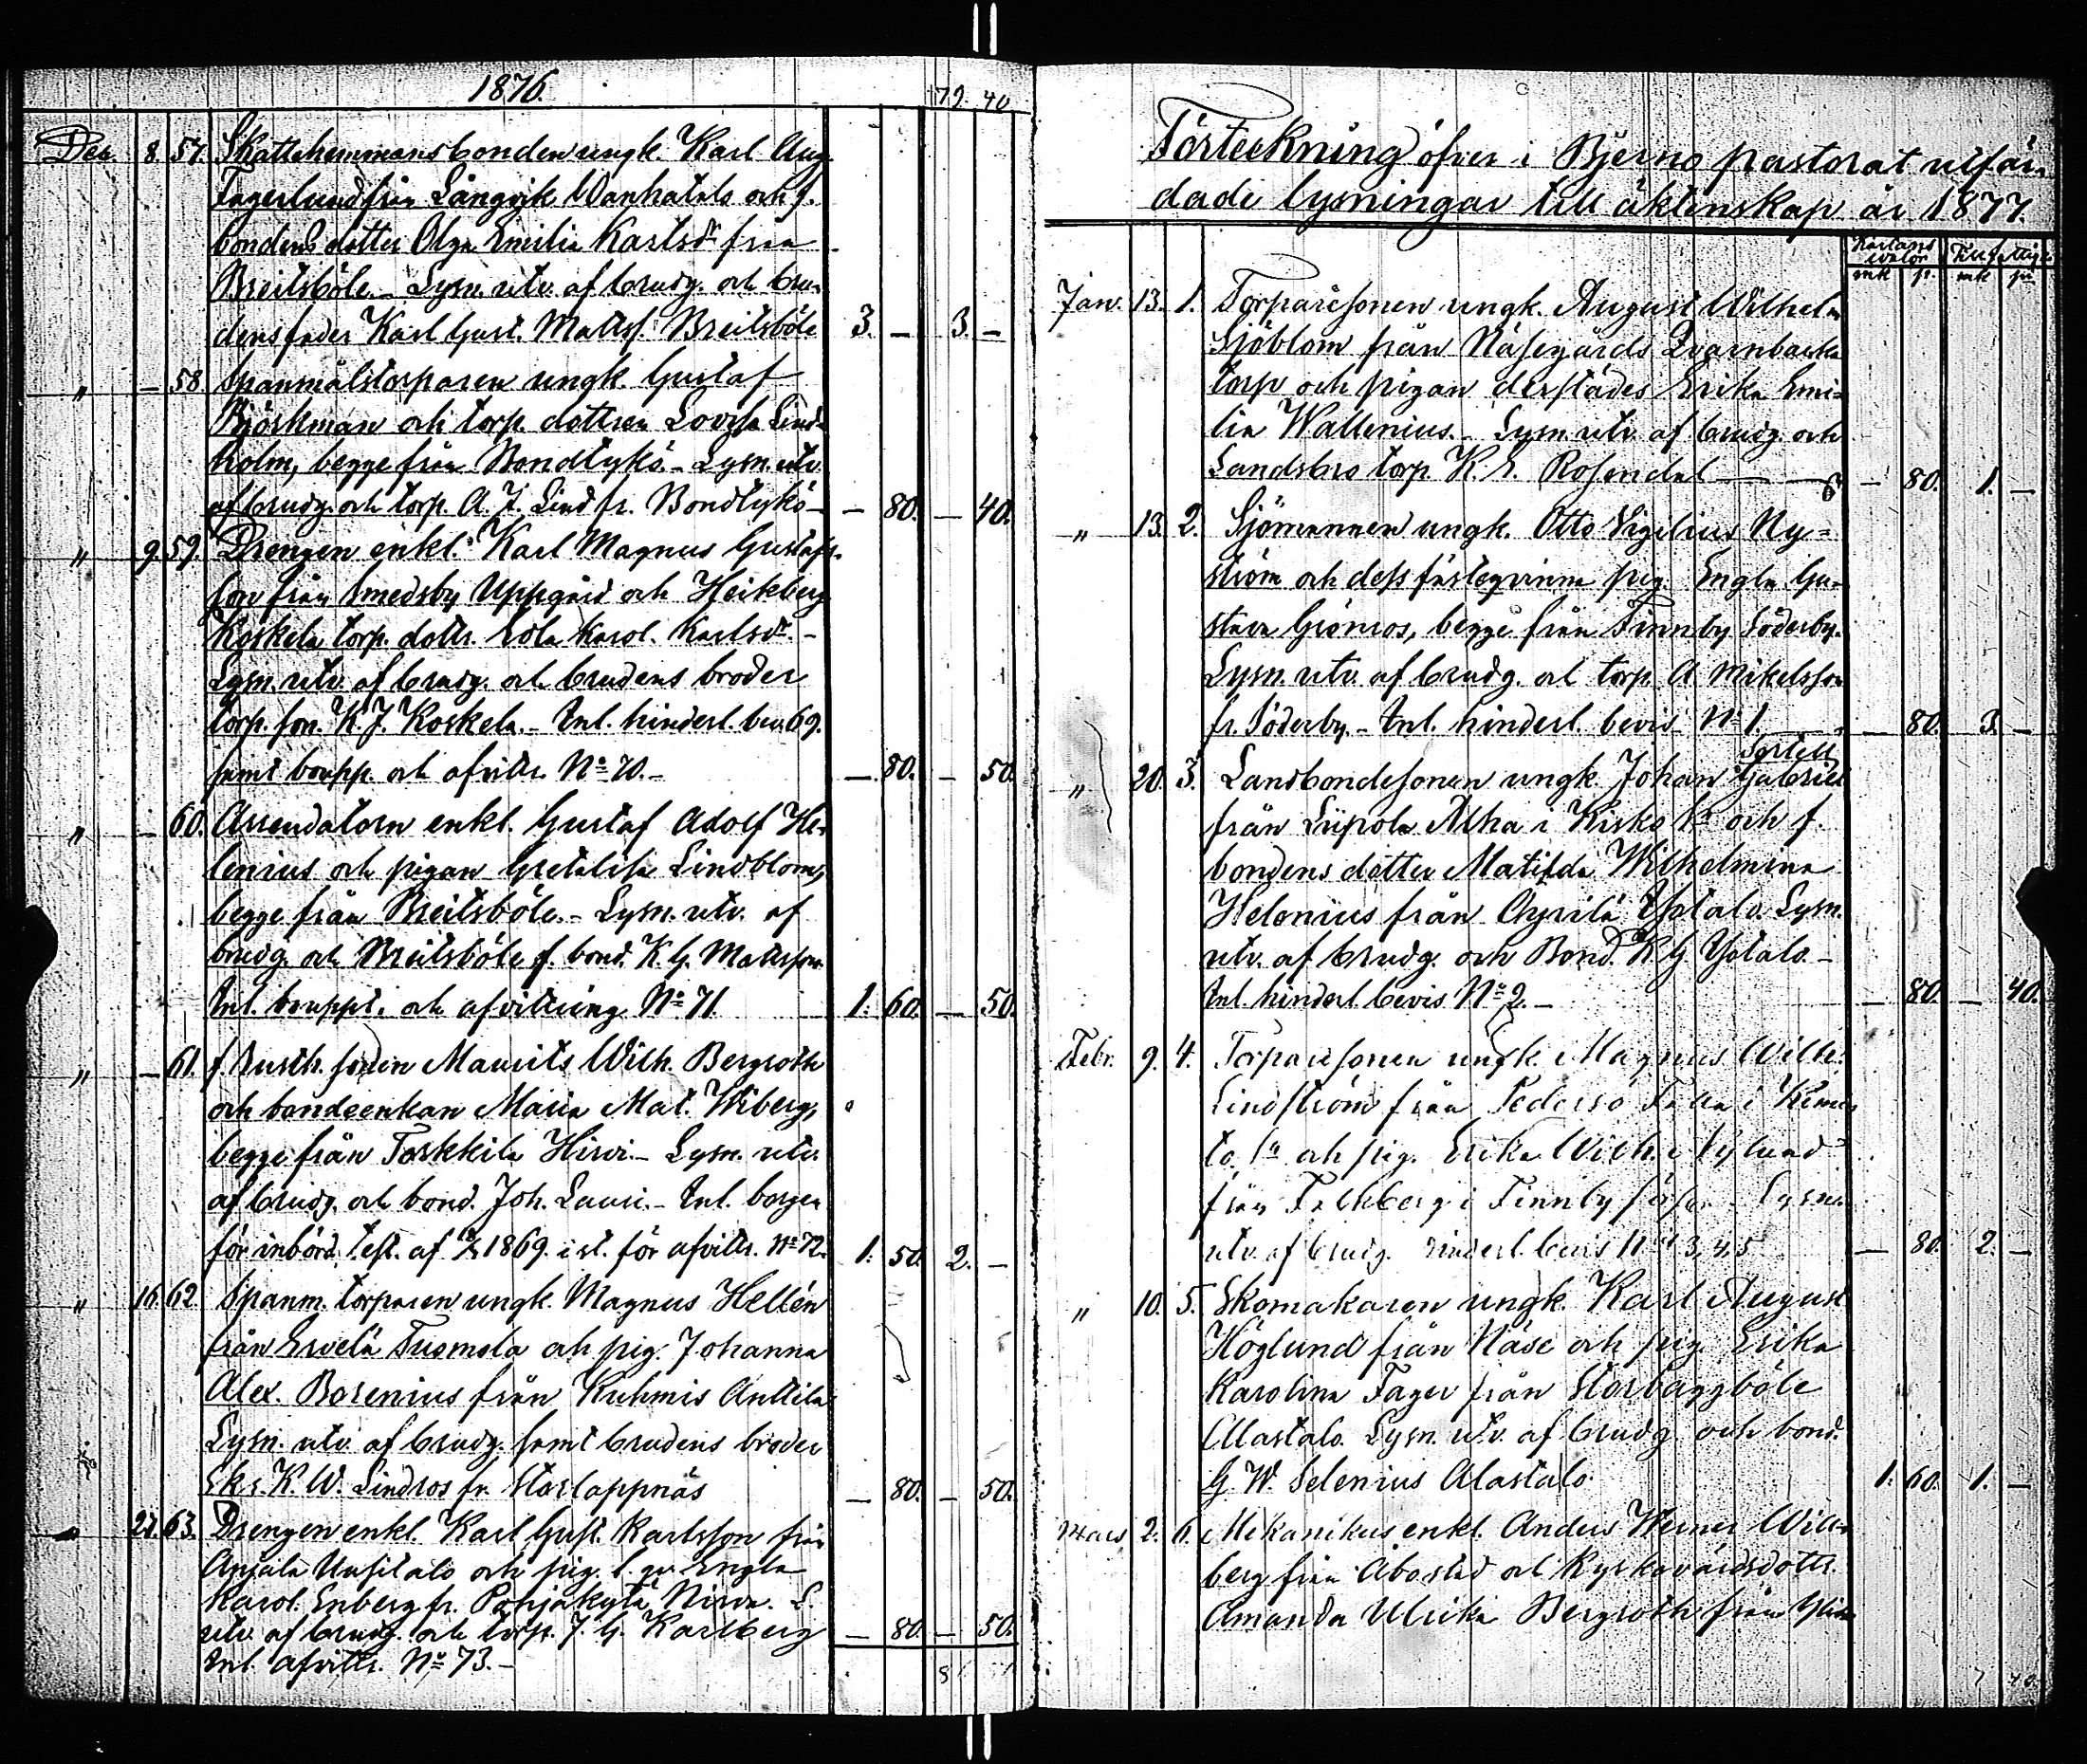 1876.
79. 40
Dec. 8. 57. Skattehemmansbonden ungk. Karl Aug.
Fagerlund från Långvik Wanhatalo och f.
bondens dotter Olga Emilia Karlsdr från
Breitsböle. – Lysn. utv. af brudg. och bru-
dens fader Karl Gust. Matts. Breitsböle 3. – 3. –
" – 58. Spanmålstorparen ungk. Gustaf
Björkman och torp. dottren Lovisa Lind-
holm, begge från Bondtykö. – Lysn. utv.
af brudg. och torp. A. F. Lind fr. Bondtykö – – 80. – 40.
" 9. 59. Drengen enkl. Karl Magnus Gustafs-
son från Smedsby Uppgård och Heikberg
Koskela torp. dottr. Eva Karol. Karlsdr. –
Lysn. utv. af brudg. och brudens broder
torp. son. K. J. Koskela. – Inl. hinderl. bev. 69.
samt boupp. och afvittr. No 70. – – 80. – 50.
" – 60. Arrendatorn enkl. Gustaf Adolf He-
lenius och pigan Gretalisa Lindblom,
begge från Breitsböle. – Lysn. utv. af
brudg. och Breitsböle f. bond. K. G. Mattsson.
Inl. bouppt. och afvittring No 71. 1. 60. – 50.
" – 61. f. Rusth. sonen Maurits Wilh. Bergroth
och bondeenkan Maria Mat. Wiberg,
begge från Torkkila Hirvi. – Lysn. utv.
af brudg. och bond. Joh. Lauri. – Inl. borgen
för inbörd. test. af 1869. i st. för afvittr. No 72. 1. 50. 2. –
" 16. 62. Spanm. torparen ungk. Magnus Hellén
från Ervelä Tuomola och pig. Johanna
Alex. Borenius från Kuhmis Anttila
Lysn. utv. af brudg. samt brudens broder
Skr. K. W. Lindros fr. Storlappnäs – 80. – 50.
27. 63. Drengen enkl. Karl Gust. Karlsson från
Anjala Uusitalo och pig. l. qv. Engla
Karol. Enberg fr. Pohjakylä Nirva. L.
utv. af brudg. och torp. J. G. Karlberg – 80. – 50.
Inl. afvittr. No 73. –
Förteckning öfver i Bjerno pastorat utfär-
dade lysningar till äktenskap år 1877.
mk p. mk pi
Jan. 13. 1. Torparesonen ungk. August Wilhelm
Sjöblom från Näsegårds Qvarnbacka
torp och pigan derstädes Erika Emi-
lia Wallenius. – Lysn. utv. af brudg. och
Landsbro torp. K. E. Rosendal – – 80. 1. –
" 13. 2. Sjömannen ungk. Otto Vigilius Ny-
ström och dess fästeqvinna pig. Engla Gu-
stava Grönros, begge från Finnby Söderby.
Lysn. utv. af brudg. och torp. A Mikelsson
fr. Söderby. – Inl. hinderl. bevis No 1. – 80. 3. –
Sortell
" 20. 3. Landbondesonen ungk. Johan Gabriel
från Liipola Alha i Kisko sn och f.
bondens dotter Matilda Wilhelmina
Helenius från Ylistalo Lysn.
utv. af brudg. och Bond. K. G. Ylistalo. –
Inl. hinderl. bevis No 2. – – 80. – 40.
Febr. 9. 4. Torparesonen ungk. Magnus Wilh.
Lindström från Pedersö i Kimi-
to sn och pig. Erika Wilh. Nylund
från Falkberg i Finnby förs. – Lysn.
utv. af brudg. hinderl. bevis No 3, 4, 5 – 80. 2. –
" 10. 5. Skomakaren ungk. Karl August
Höglund från Näse och pig. Erika
Karolina Fager från Storbaggböle
Alastalo. Lysn. utv. af brudg. och bond.
G. W. Selenius Alastalo. 1. 60. 1. –
Mars 2. 6. Mekanikus enkl. Anders Werner Will-
berg från Åbo stad och Kyrkovärdsdottr.
Amanda Ulrika Bergroth från